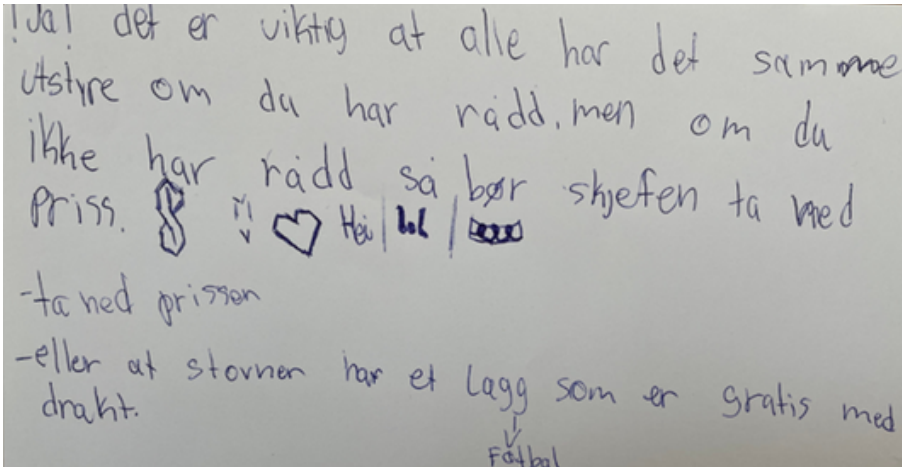 !Ja! det er viktig at alle har det samme
utstyre om du har rådd. men om du
ikke har rådd så bør skjefen ta ned
priss. 8 Hei
-ta ned prissen
-eller at stovner har et Lagg som er gratis med
drakt.
Fotbal